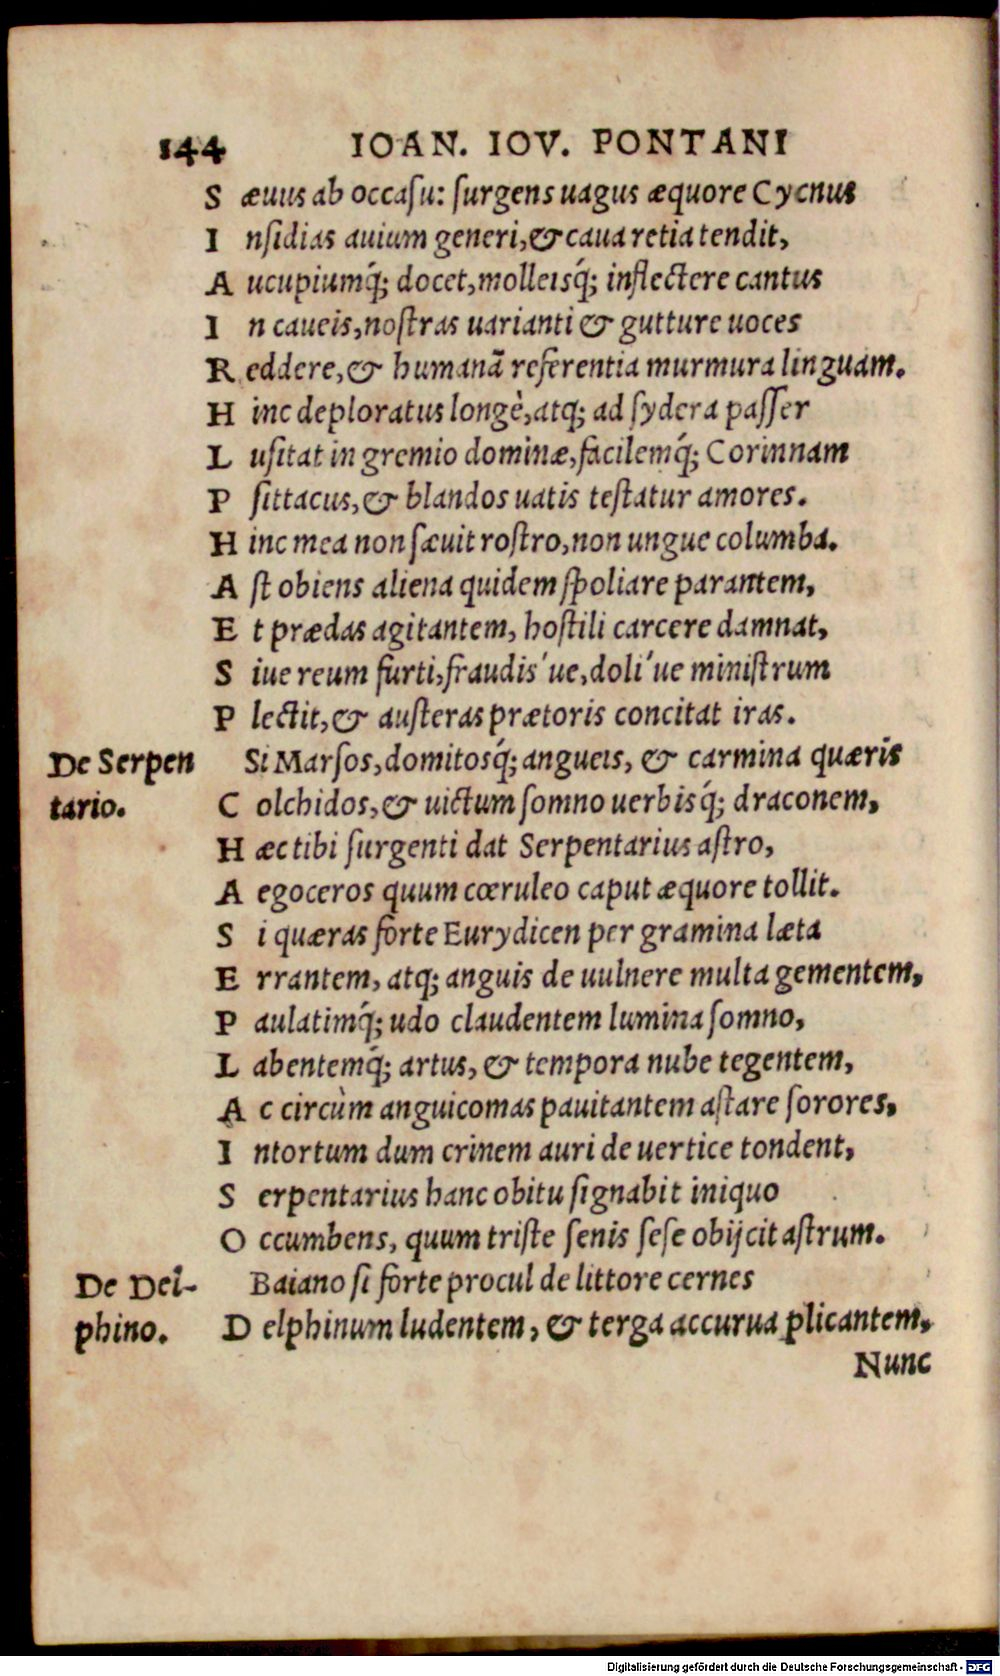 144 IOAN. IOV. PONTANI
S æuus ab occaſu: ſurgens uagus æquore Cycnus
I nſidias auium generi, & caua retia tendit,
A ucupiumq́; docet, molleisq́; inflectere cantus
I n caueis, noſtras uarianti & gutture uoces
R eddere, & humanā referentia murmura linguam.
H inc deploratus longè, atq; ad ſydera paſſer
L uſitat in gremio dominæ, facilemq́; Corinnam
P ſittacus, & blandos uatis teſtatur amores.
H inc mea non ſæuit roſtro, non ungue columba.
A ſt obiens aliena quidem ſpoliare parantem,
E t prædas agitantem, hoſtili carcere damnat,
S iue reum furti, fraudis'ue, doli'ue miniſtrum
P lectit, & auſteras prætoris concitat iras.
De Serpen Si Marſos, domitosq́; angueis, & carmina quæris
tario. C olchidos, & uictum ſomno uerbisq́; draconem,
H æc tibi ſurgenti dat Serpentarius aſtro,
A egoceros quum cœruleo caput æquore tollit.
S i quæras forte Eurydicen per gramina læta
E rrantem, atq; anguis de uulnere multa gementem,
P aulatimq́; udo claudentem lumina ſomno,
L abentemq́; artus, & tempora nube tegentem,
A c circùm anguicomas pauitantem aſtare ſorores,
I ntortum dum crinem auri de uertice tondent,
S erpentarius hanc obitu ſignabit iniquo
O ccumbens, quum triſte ſenis ſeſe obijcit aſtrum.
De Del- Baiano ſi forte procul de littore cernes
phino. D elphinum ludentem, & terga accurua plicantem,
Nunc
Digitalisierung gefördert durch die Deutsche Forschungsgemeinschaft - DFG